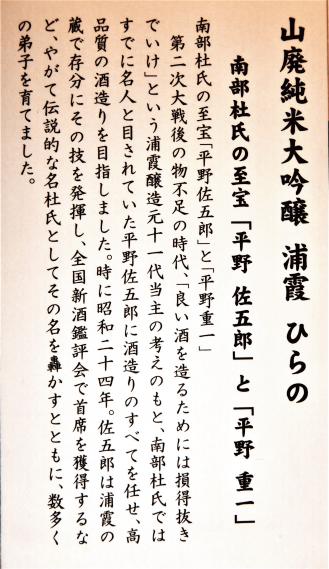 山廃純米大吟醸 浦霞 ひらの
南部杜氏の至宝「平野 佐五郎」と「平野 重一」
南部杜氏の至宝「平野佐五郎」と「平野重一」
第二次大戦後の物不足の時代、「良い酒を造るためには損得抜き
でいけ」という浦霞醸造元十一代当主の考えのもと、南部杜氏では
すでに名人と目されていた平野佐五郎に酒造りのすべてを任せ、高
品質の酒造りを目指しました。時に昭和二十四年。佐五郎は浦霞の
蔵で存分にその技を発揮し、全国新酒鑑評会で首席を獲得するな
ど、やがて伝説的な名杜氏としてその名を轟かすとともに、数多く
の弟子を育てました。